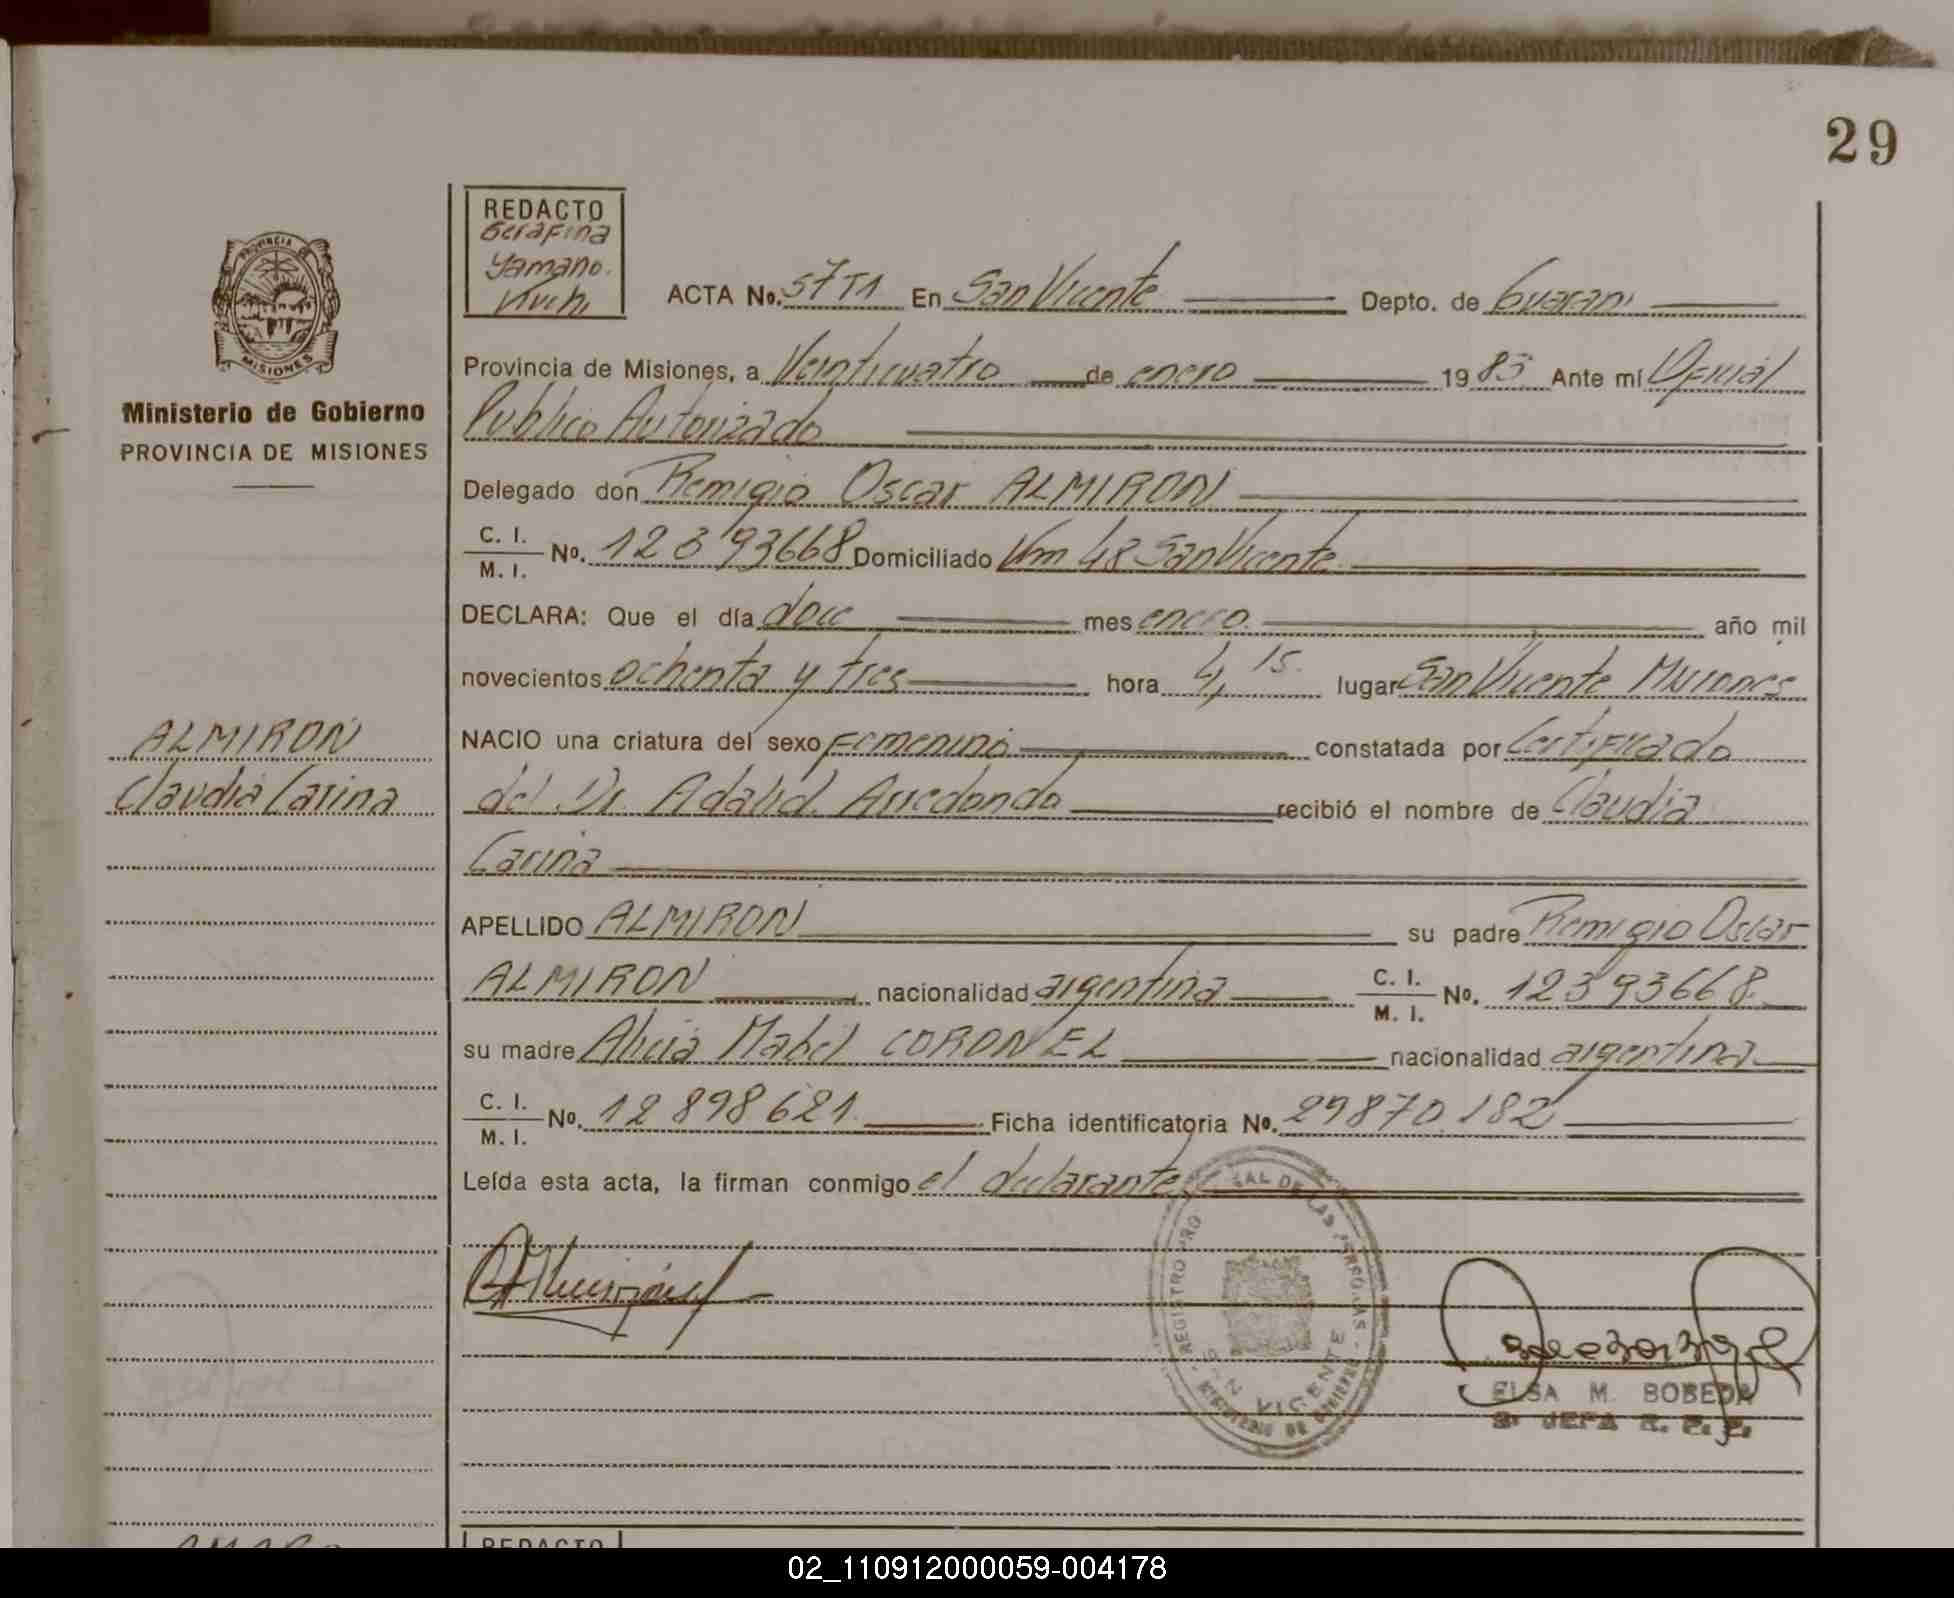 29
REDACTO
Serafina
Yamano.
ACTA No. 57 T1 En San Vicente Depto. de Guarani
PROVINCIA DE
MISIONES
Provincia de Misiones, a Veinticuatro de enero 1983 Ante mí Oficial
Ministerio de Gobierno
PROVINCIA DE MISIONES
Publico Autorizado
Delegado don Remigio Oscar ALMIRON
C. I.
M. I. No. 12393668 Domiciliado Km 48 San Vicente
DECLARA: Que el día doce mes enero. año mil
novecientos ochenta y tres hora 4,15. lugar San Vicente Misiones
ALMIRON
Claudia Carina
NACIO una criatura del sexo femenino constatada por Certificado
del Dr. Adalid Arredondo recibió el nombre de Claudia
Carina
APELLIDO ALMIRON su padre Remigio Oscar
ALMIRON nacionalidad argentina C. I.
M. I. No. 12393668
su madre Alicia Mabel CORONEL nacionalidad argentina
C. I.
M. I. No. 12898621 Ficha identificatoria No. 29870.182
Leída esta acta, la firman conmigo el declarante
REGISTRO PROVINCIAL DE LAS PERSONAS
SAN VICENTE
MINISTERIO DE GOBIERNO
ELSA M. BOBEDA
JEFA R. P. P.
REDACTO
02_110912000059-004178